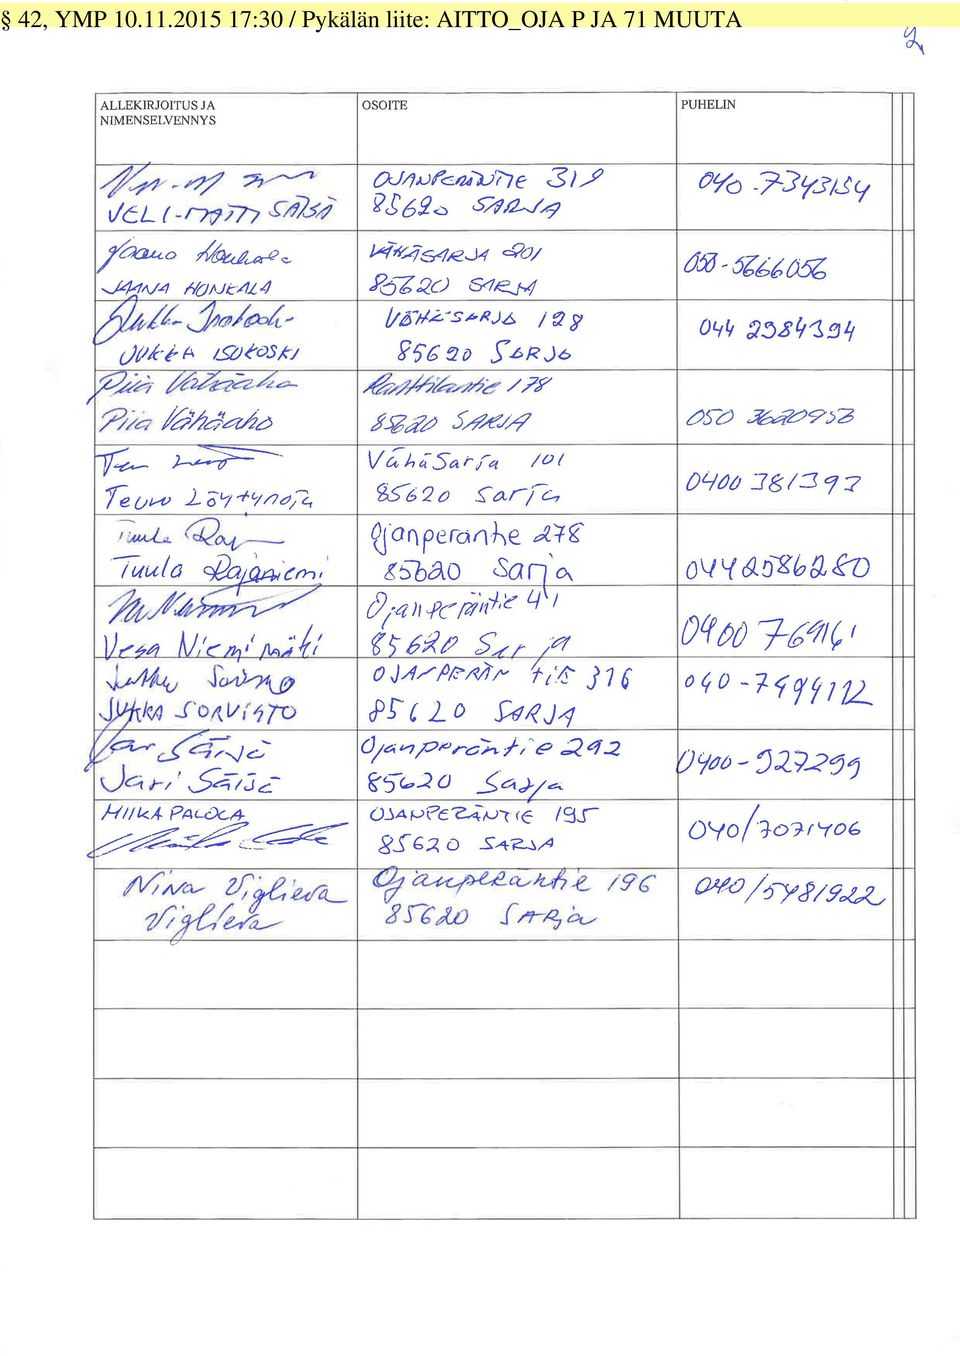 § 42, YMP 10.11.2015 17:30 / Pykälän liite: AITTO_OJA P JA 71 MUUTA
2
ALLEKIRJOITUS JA
NIMENSELVENNYS
OSOITE
PUHELIN
VELI-MATTI SÄISÄ
OJANPERÄNTIE 319
85620 SARJA
040-7343154
Jaana Honkala
JAANA HONKALA
VÄHÄSARJA 201
85620 SARJA
050-5666056
Jukka Isokoski
JUKKA ISOKOSKI
VÄHÄ-SARJA 128
85620 SARJA
044 2984394
Piia Vähäaho
Piia Vähäaho
Ranttilantie 178
85620 SARJA
050 3620953
Teuvo Löytynoja
VähäSarja 101
85620 Sarja
0400 381393
Tuula Raj
Tuula Rajaniemi
Ojanperäntie 278
85620 Sarja
0442586280
Vesa Niemimäki
Ojanperäntie 41
85620 Sarja
0400 769161
Jukka Sorvisto
JUKKA SORVISTO
OJANPERÄNTIE 316
85620 SARJA
040-7499112
Jari Säisä
Jari Säisä
Ojanperäntie 292
85620 Sarja
0400-927299
MIIKA PALOLA
OJANPERÄNTIE 195
85620 SARJA
040/7071406
Nina Viglieva
Viglieva
Ojanperäntie 196
85620 SARja
040/5481922